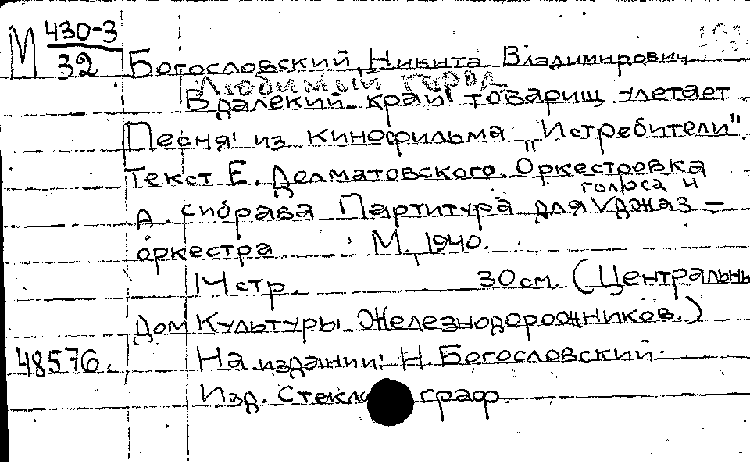 М 430-3
32
Богословский, Никита Владимирович
Любимый город
В далекий край товарищ улетает
Песня из кинофильма „Истребители".
Текст Е. Долматовского. Оркестровка
голоса и
А. Сибрава Партитура для V джаз-
оркестра М., 1940.
14 стр. 30 см. (Центральны
Дом Культуры Железнодорожников.)
48576. На издании: Н. Богословский
Изд. Стекло граф